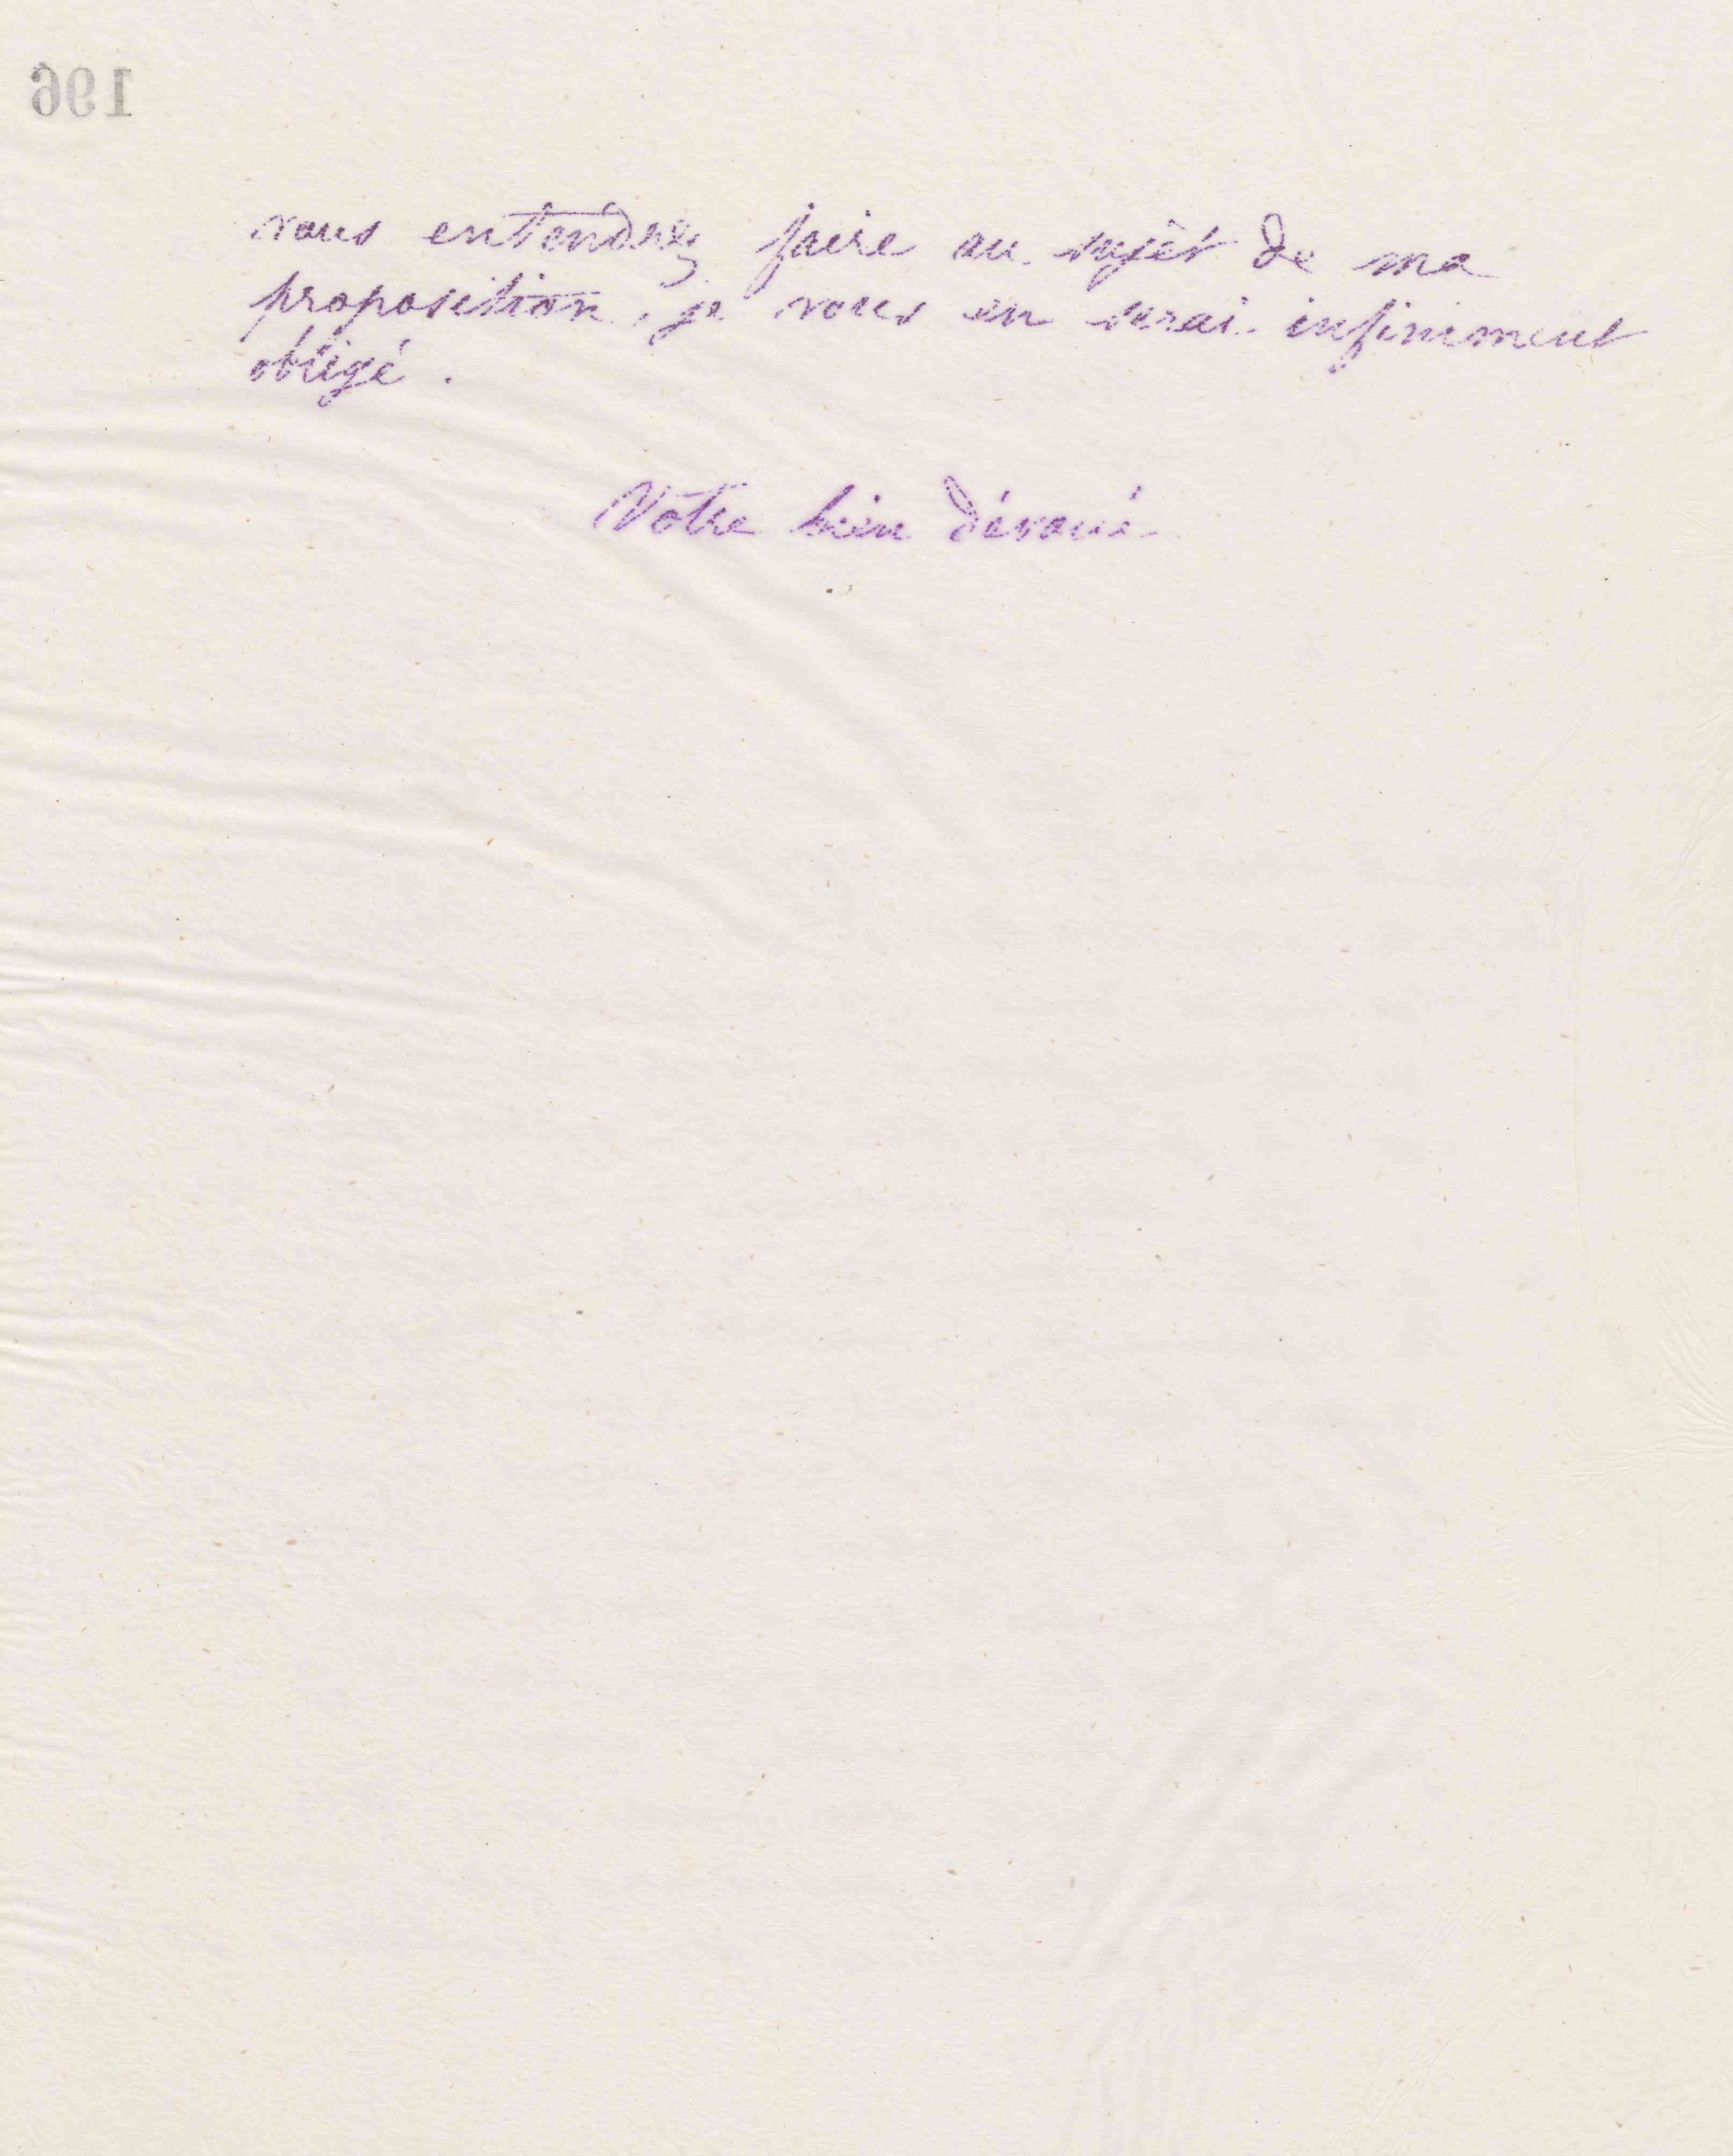 196
vous entendrez faire au sujet de ma
proposition, je vous en serai infiniment
obligé.
Votre bien dévoué